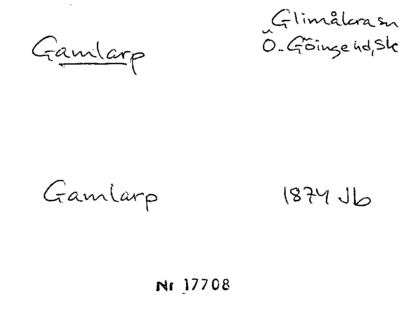 Glimåkra sn
Gamlarp Ö. Göinge hd, Sk
Gamlarp 1874 Jb
Nr 17708